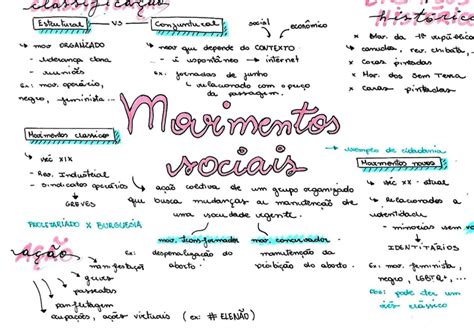 classificação
Estrutural vs Conjuntural
social
econômico
→ mov ORGANIZADO
- liderança clara
- reuniões
Ex: mov. operário,
negro, feminista...
→ mov que depende do CONTEXTO
- é espontâneo → internet
Ex: jornadas de junho
↳ relacionado com o preço
da passagem.
Históric
x Mov. da 1ª república
canudos, rev. chibata,
x Caras pintadas
x Mov. dos Sem Terra
x Caras pintadas
Movimentos
sociais
Movimentos clássicos
→ séc XIX
- Rev. Industrial
- sindicatos operários
↳ GREVES
PROLETARIADO X BURGUESIA
→ exemplo de cidadania
Movimentos novos
→ séc XX - atual
→ relacionados a
identidade
- minorias sem vo
↳ IDENTITÁRIOS
Ex: mov. feminista,
negro, LGBTQ+,
Obs: pode ter um
viés CLÁSSICO
↳ ação coletiva de um grupo organizado
que busca mudanças ou manutenção de
uma sociedade vigente.
mov. transformador
Ex: despenalização do
aborto.
mov. conservador
manutenção da
proibição do aborto.
AÇÃO
manifestações
greves
passeatas
panfletagem
ocupações, ações virtuais (ex: # ELENÃO)